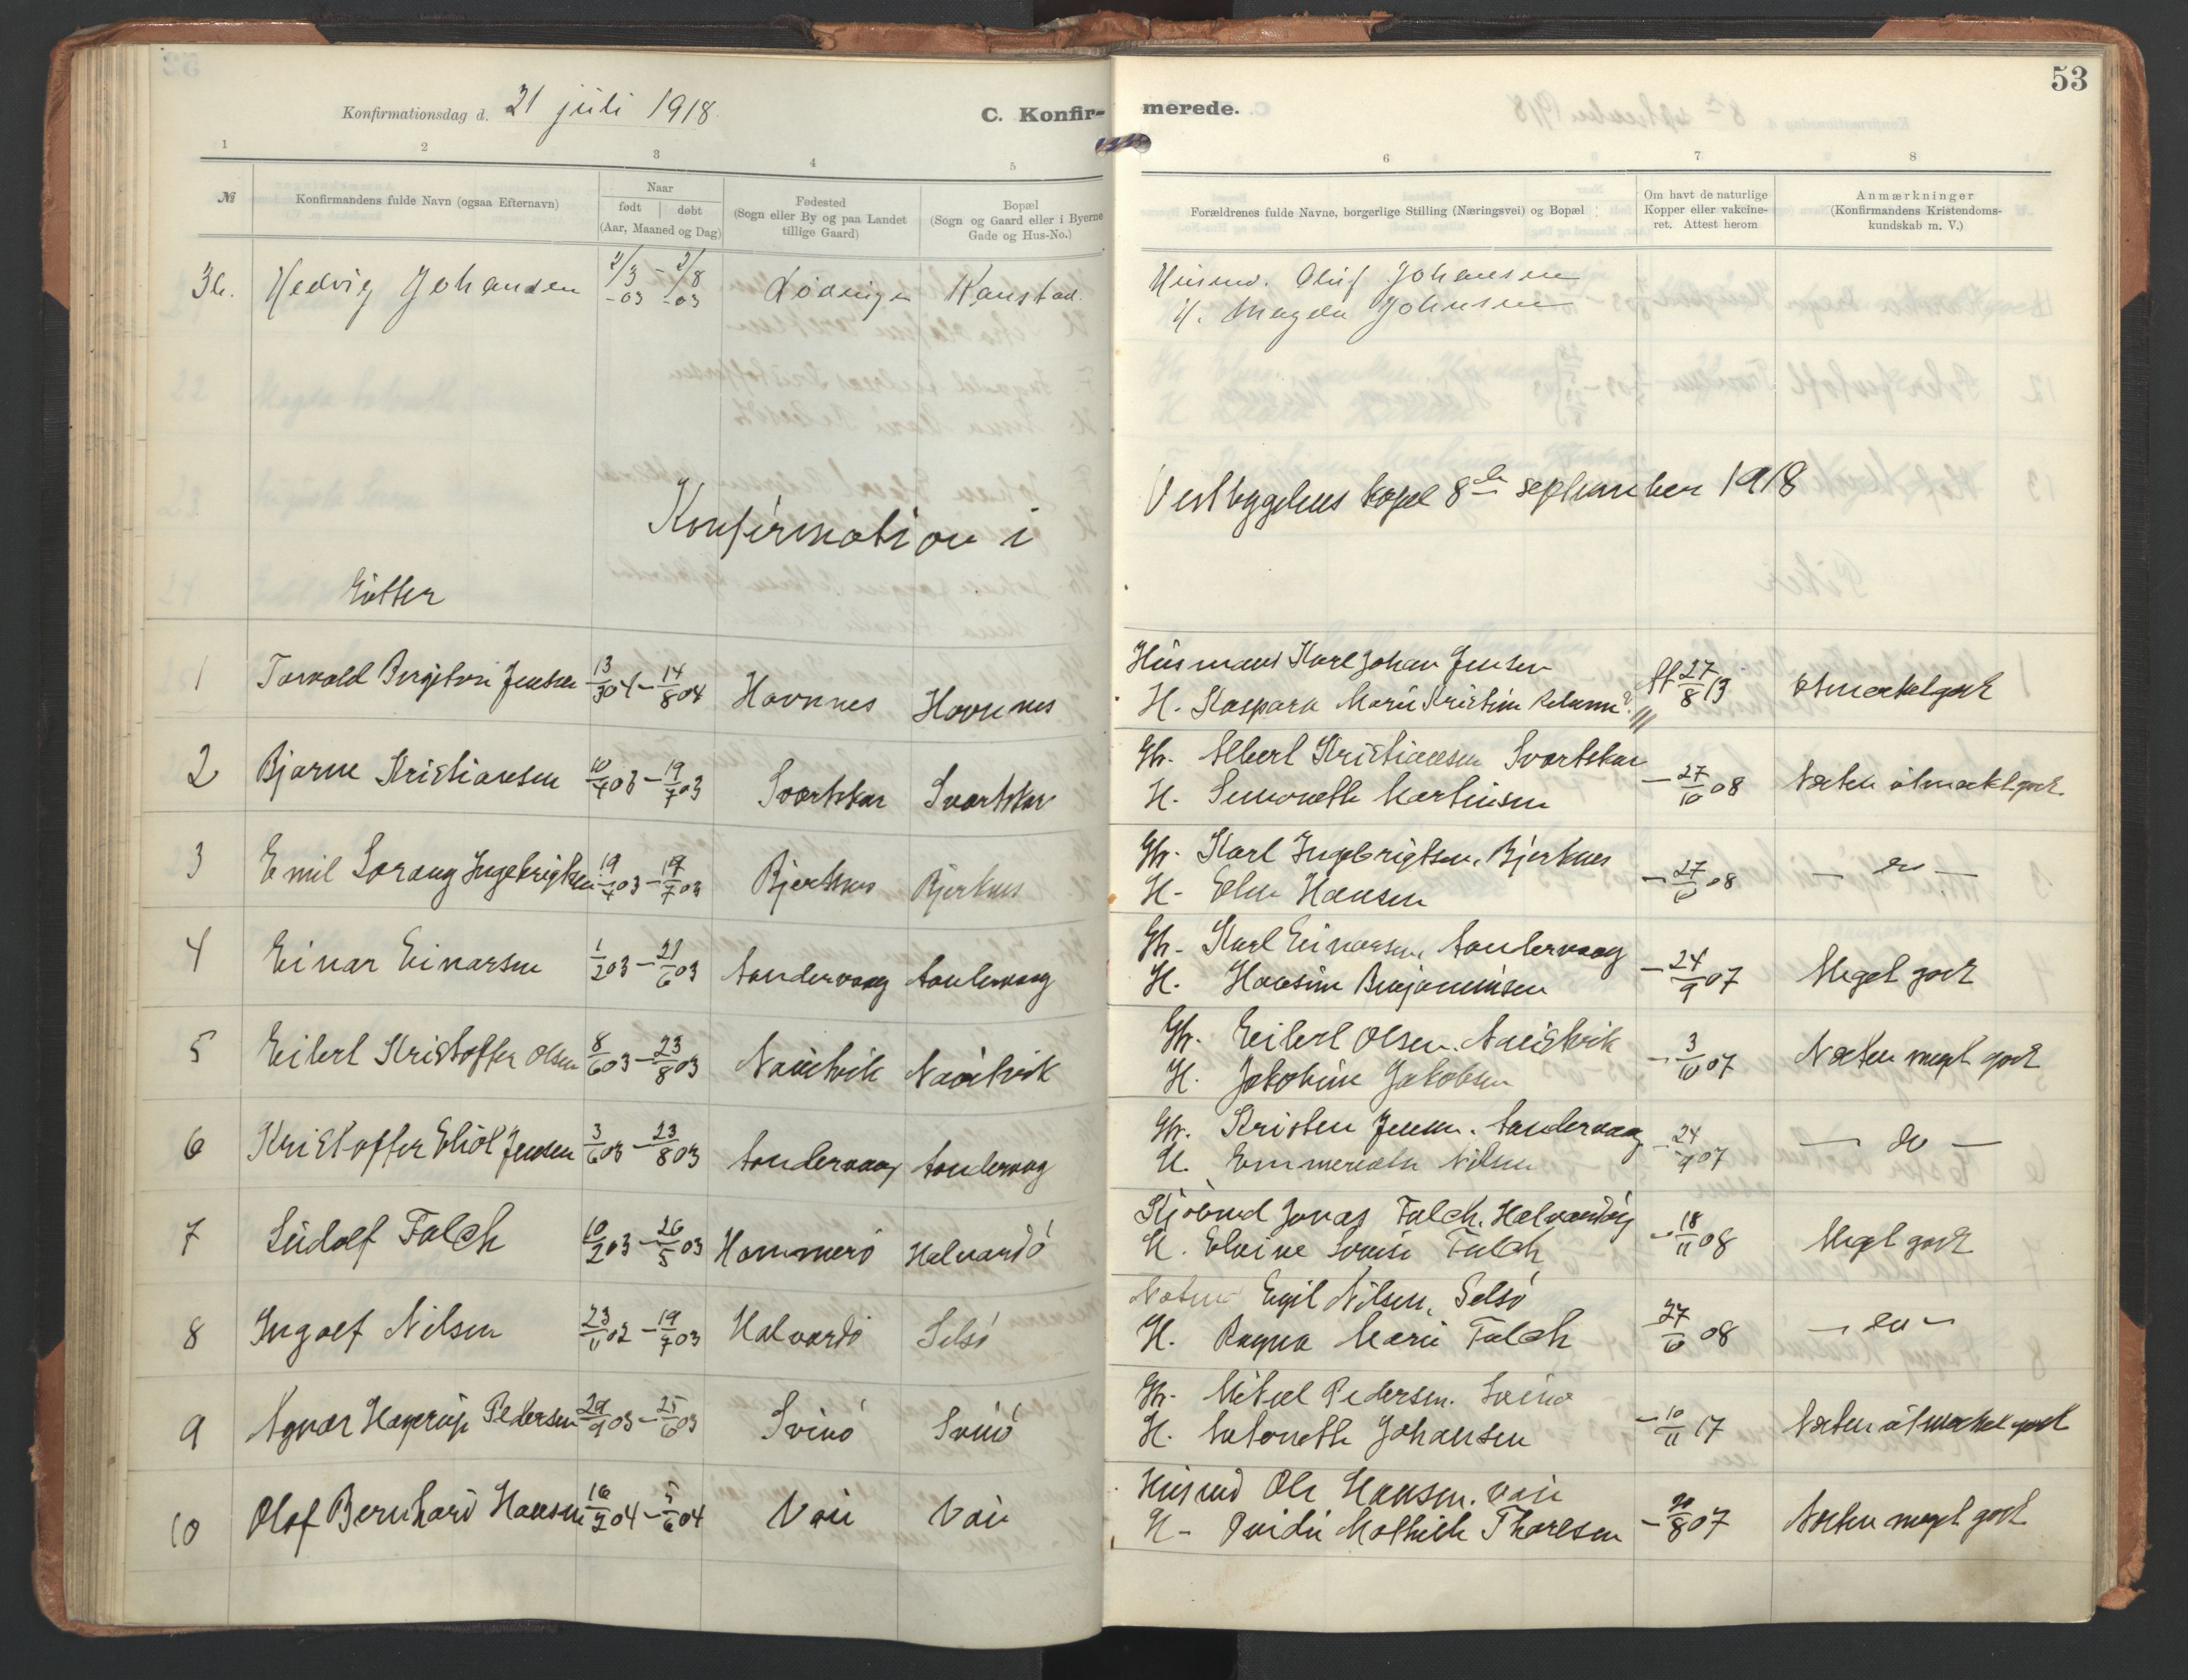 53
Konfirmationsdag d. 21 juli 1918.
C. Konfirmerede.
1 2 3 4 5 6 7 8
№
Konfirmandens fulde Navn (ogsaa Efternavn)
Naar
født | døbt
(Aar, Maaned og Dag)
Fødested
(Sogn eller By og paa Landet
tillige Gaard)
Bopæl
(Sogn og Gaard eller i Byerne
Gade og Hus-No.)
Forældrenes fulde Navne, borgerlige Stilling (Næringsvei) og Bopæl
Om havt de naturlige
Kopper eller vakcine-
ret. Attest herom
Anmærkninger
(Konfirmandens Kristendoms-
kundskab m. V.)
36. Hedvig Johansen 2/3 -03 - 2/8 -03 Lødingen Kanstad.
Husmd. Oluf Johansen
H. Magda Johansen
Konfirmation i Vestbygdens kapel 8de september 1918
Gutter
1 Torvald Bergiton Jensen 13/3 04 - 14/8 04 Havnnes Havnnes
Husmand Karl Johan Jensen
H. Kaspara Marie Kristine
27/8 13 Utmerket godt
2 Bjarne Kristiansen 10/4 03 - 19/7 03 Svartskar Svartskar
Gb. Albert Kristiansen Svartskar
H. Simonette Martinsen
- 27/10 08 Næsten utmerket godt.
3 Emil Sorang Ingebrigtsen 19/4 03 - 19/7 03 Bjerknes Bjerknes
Gb. Karl Ingebrigtsen, Bjerknes
H. Hansen
- 27/10 08 - do -
4 Einar Einarsen 1/2 03 - 21/6 03 Søndervaag Søndervaag
Gb. Karl Einarsen, Søndervaag
H. Hansine Benjaminsen
- 24/9 07 Meget godt
5 Eilert Kristoffer Olsen 8/6 03 - 23/8 03 Naustvik Naustvik
Gb. Eilert Olsen. Naustvik
H. Jakobine Jakobsen
- 3/10 07 Næsten meget godt
6 Kristoffer Eliot Jensen 3/6 03 - 23/8 03 Søndervaag Søndervaag
Gb. Kristen Jensen. Søndervaag
H. Nilsen
- 24/9 07 - do -
7 Ludolf Falch 10/2 03 - 26/5 03 Hammerø Halvardø
Jonas Falch. Halvardøy
H. Elvine Lovise Falch
- 18/11 08 Meget godt
8 Ingolf Nilsen 23/11 02 - 19/7 03 Halvardø Selsø
Egil Nilsen, Selsø
H. Ragna Marie Falch
27/10 08 - do -
9 Agnar Hagerup Pedersen 29/9 03 - 25/6 03 Svinø Svinø
Gb. Mikal Pedersen. Svinø
H. Antonette Johansen
- 10/11 17 Næsten utmerket godt
10 Olaf Bernhard Hansen 16/2 04 - 5/6 04 Voie Voie
Husmd Ole Hansen. Voie
H - Mathilde Tharlsen
- 20/8 07 Næsten meget godt